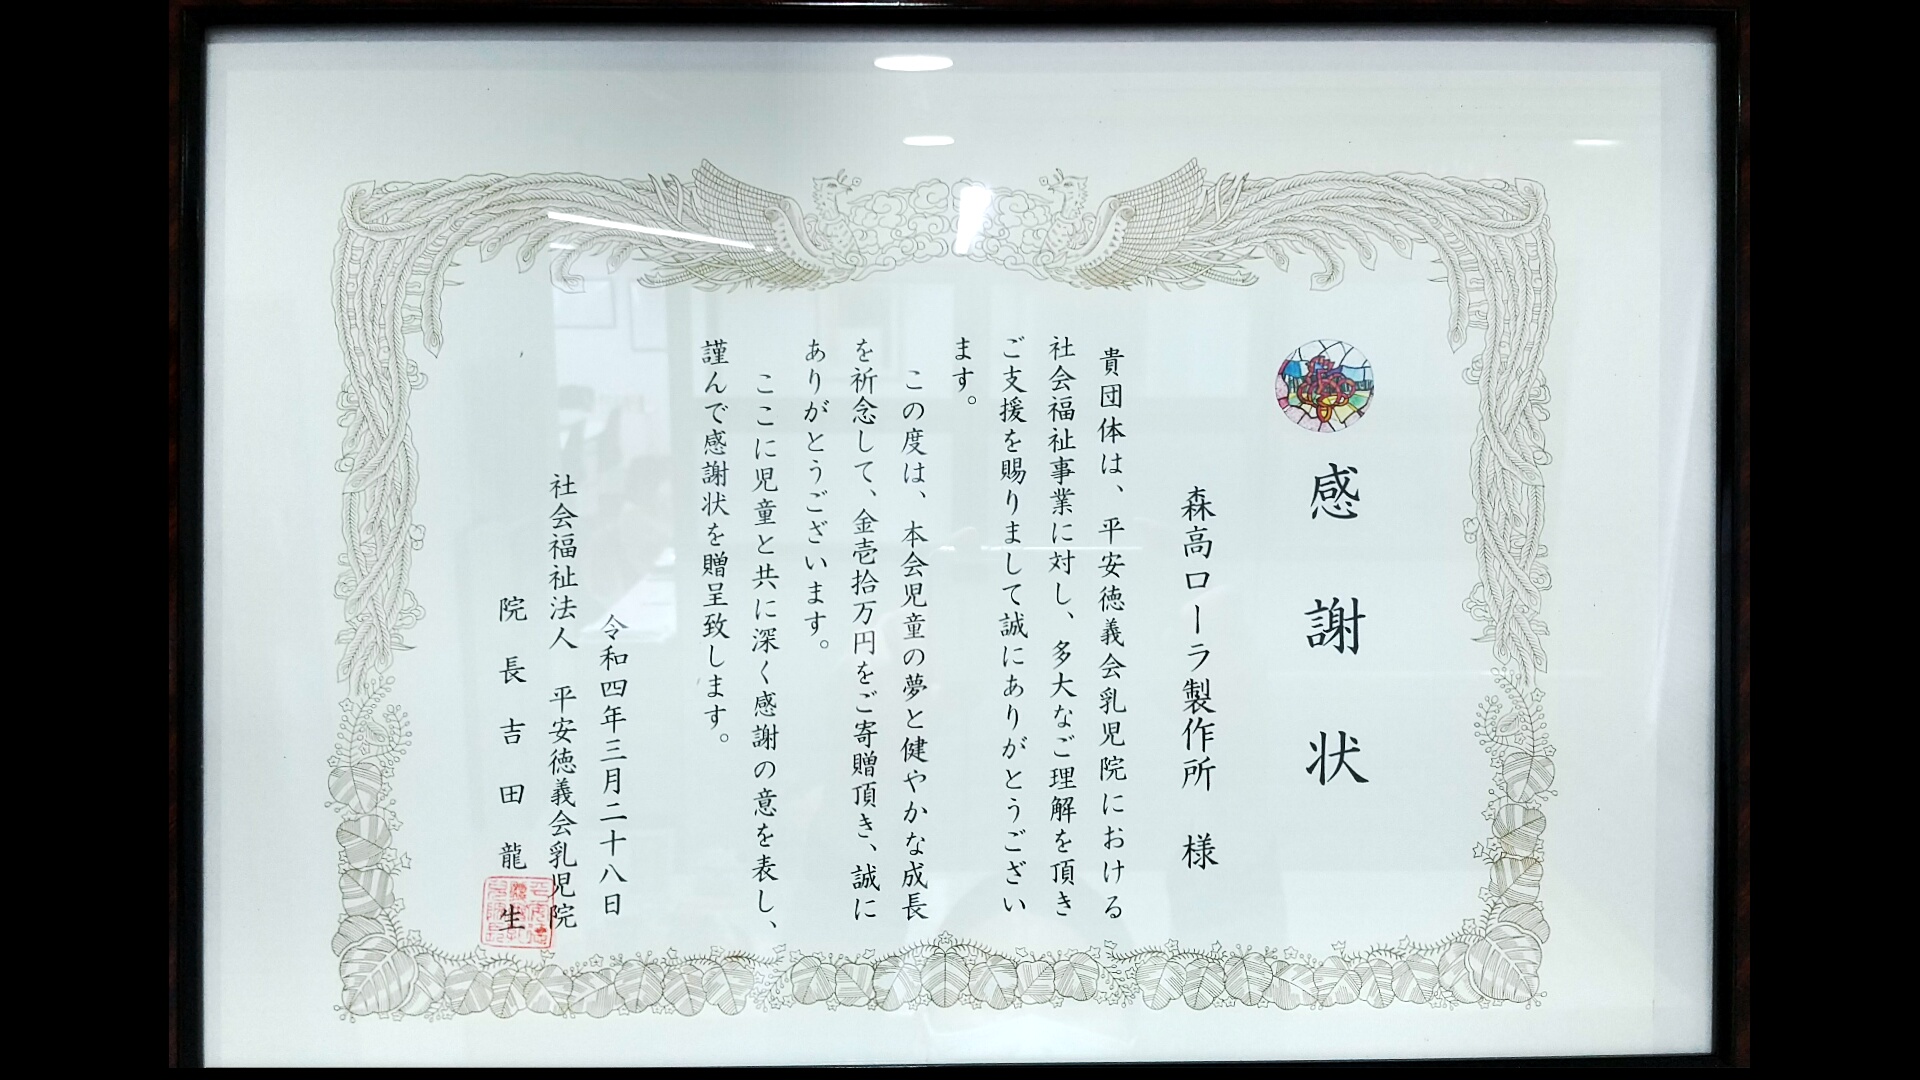 感謝状
森高ローラ製作所 様
貴団体は、平安徳義会乳児院における
社会福祉事業に対し、多大なご理解を頂き
ご支援を賜りまして誠にありがとうござい
ます。
この度は、本会児童の夢と健やかな成長
を祈念して、金壱拾万円をご寄贈頂き、誠に
ありがとうございます。
ここに児童と共に深く感謝の意を表し、
謹んで感謝状を贈呈致します。
令和四年三月二十八日
社会福祉法人 平安徳義会乳児院
院長 吉田龍生